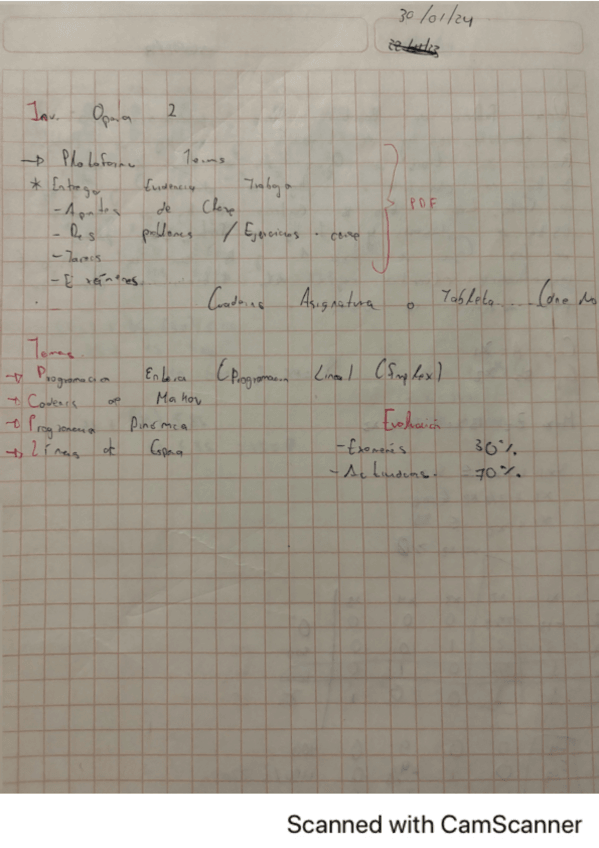 30/01/24
Inv. Opera 2
→ Plataforma Teams
* Entrega Evidencia Trabajo
- Apuntes de Clase
- Res problemas / Ejercicios - casa
- Tareas
- Exámenes
PDF
Cuaderno Asignatura o Tableta ... (One No
Temas
→ Programacion Entera (Programacion Lineal (Simplex)
→ Cadenas de Markov
→ Programacion Dinamica
→ Lineas de Espera
Evaluación
- Exámenes 30%.
- Actividades. 70%.
Scanned with CamScanner